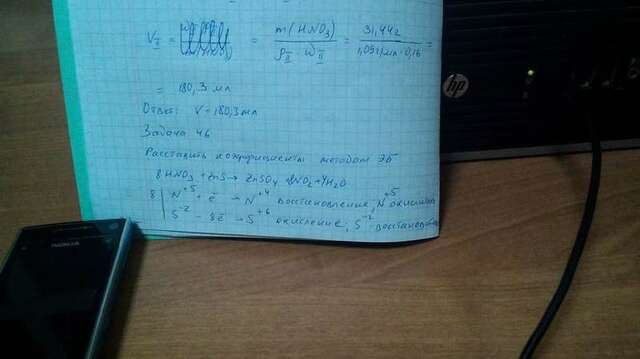 V II = = m(HNO3) / ρ II · ω II = 31,44г / 1,09г/мл · 0,16 =
= 180,3 мл
Ответ: V = 180,3 мл
Задача 46
Расставить коэффициенты методом ЭБ
8HNO3 + ZnS → ZnSO4 8NO2 + 4H2O
8 | N+5 + ē → N+4 восстановление, N+5
S-2 - 8ē → S+6 окисление, S-2
hp
NOKIA